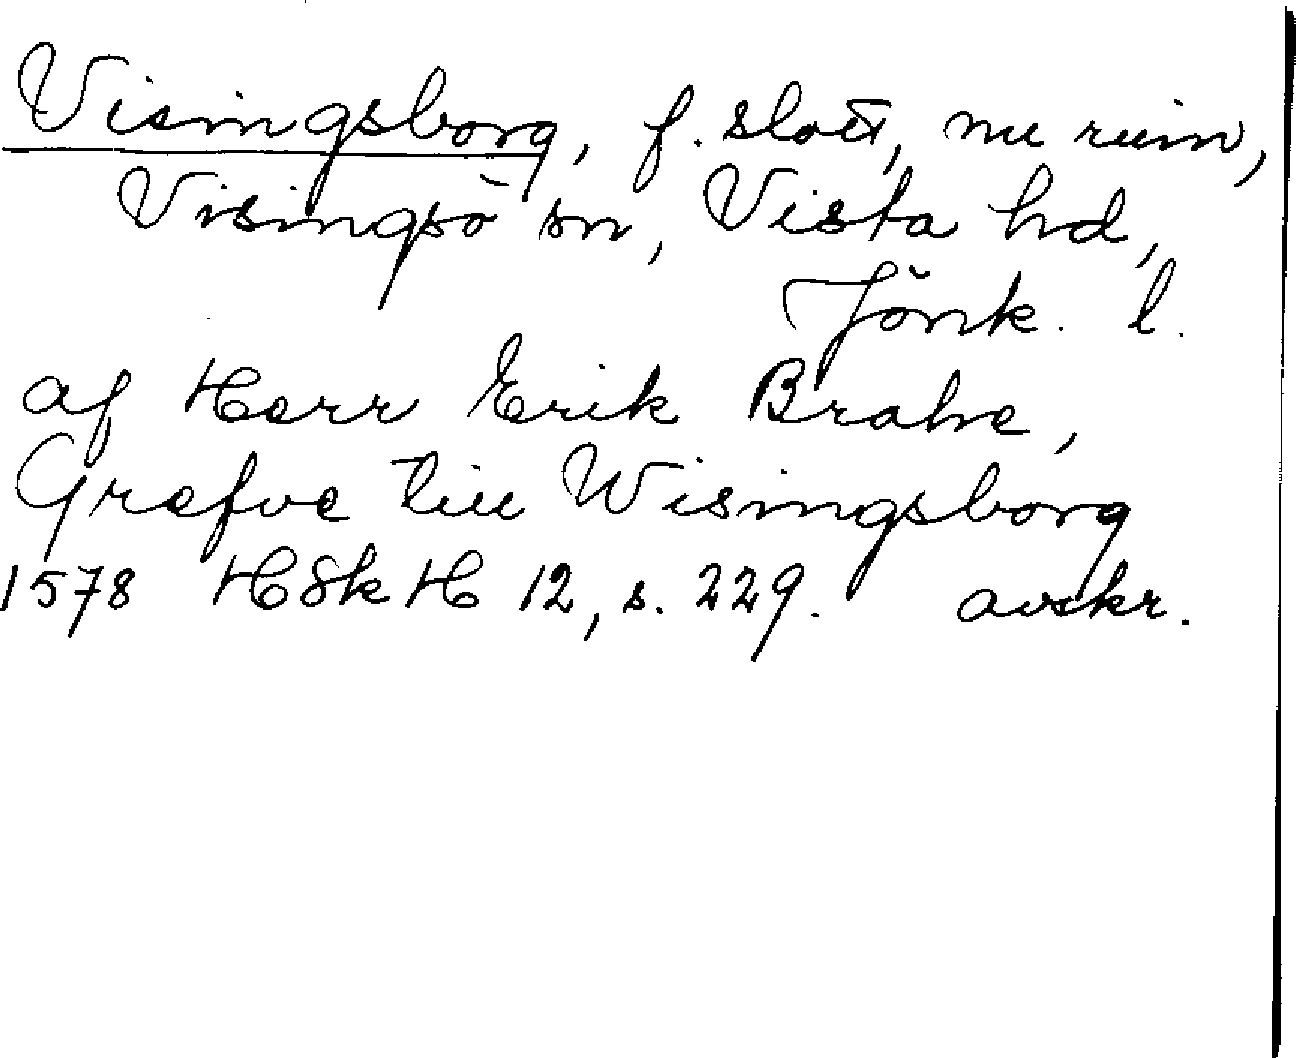 Visingsborg, f. slott, nu ruin,
Visingsö sn, Vista hd,
Jönk. l.
af Herr Erik Brahe,
Grefve till Wisingsborg
1578 HSkH 12, s. 229. avskr.